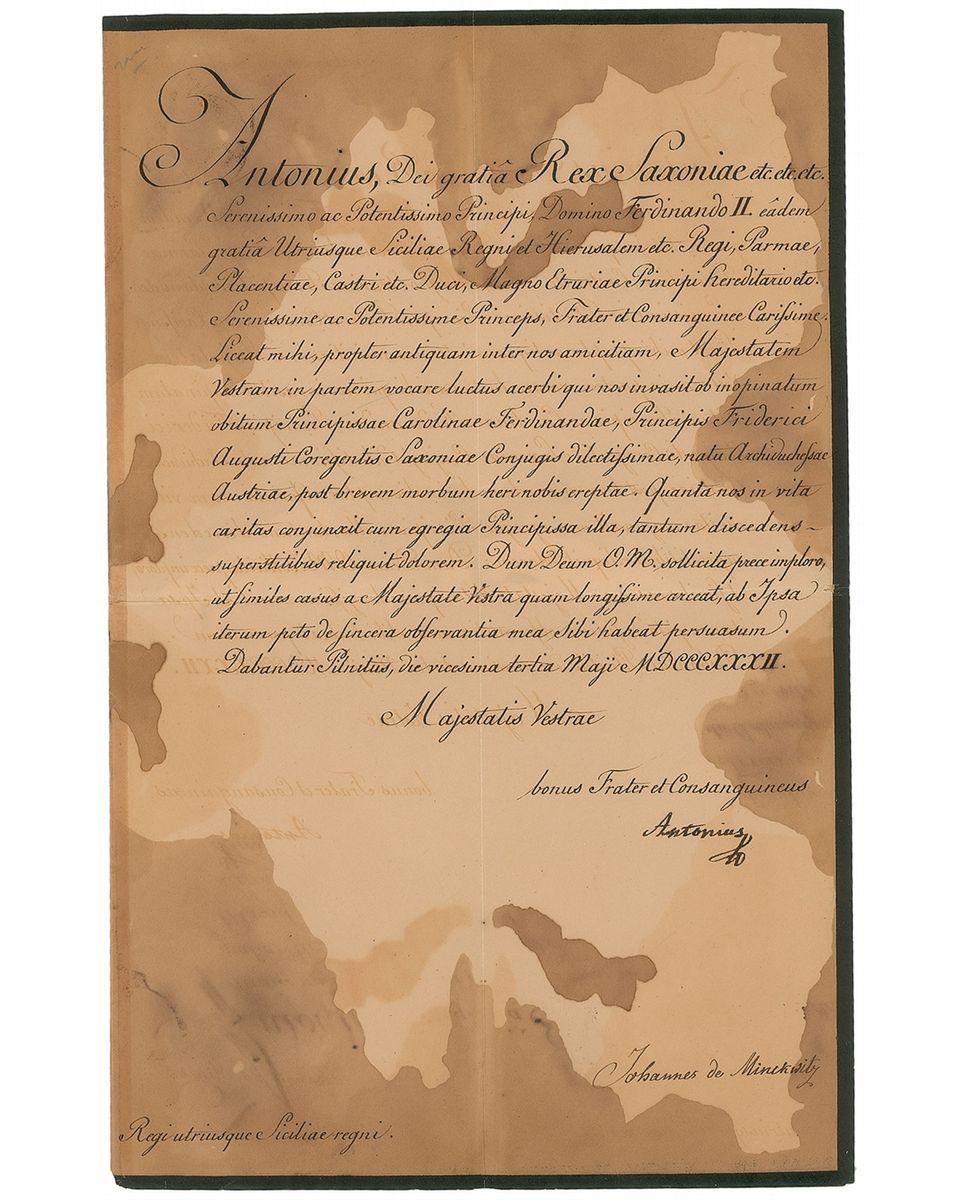 Antonius, Dei gratiâ Rex Saxoniae etc. etc. etc.
Serenissimo ac Potentissimo Principi, Domino Ferdinando II. eâdem
gratiâ Utriusque Siciliae Regni et Hierusalem etc. Regi, Parmae,
Placentiae, Castri etc. Duci, Magno Etruriae Principi hereditario etc.
Serenissime ac Potentissime Princeps, Frater et Consanguinee Carißime.
Liceat mihi, propter antiquam inter nos amicitiam, Majestatem
Vestram in partem vocare luctus acerbi qui nos invasit ob inopinatum
obitum Principissae Carolinae Ferdinandae, Principis Friderici
Augusti Coregentis Saxoniae Conjugis dilectißimae, natu Archiduchessae
Austriae, post brevem morbum heri nobis ereptae. Quanta nos in vita
caritas conjunxit cum egregia Principissa illa, tantum discedens
superstitibus reliquit dolorem. Dum Deum O. M. sollicita prece imploro,
ut similes casus a Majestate Vestra quam longißime arceat, ab Ipsa
iterum peto de sincera observantia mea Sibi habeat persuasum.
Dabantur Pilnitiis, die vicesima tertia Maji MDCCCXXXII.
Majestatis Vestrae
bonus Frater et Consanguineus
Antonius
Johannes de Minckwitz
Regi utriusque Siciliae regni.